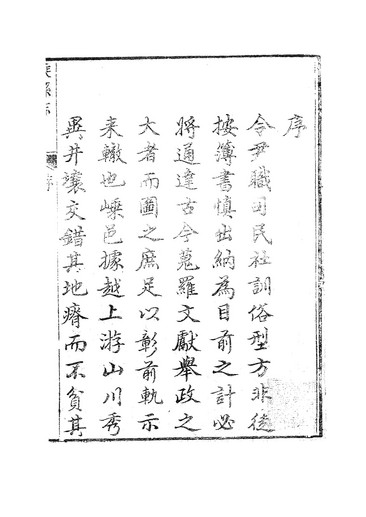 序
令尹職司民社訓俗型方非徒
按簿書慎出納為目前之計必
將通達古今蒐羅文獻舉政之
大者而圖之庶足以彰前軌示
来轍也嵊邑據越上游山川秀
異井壤交錯其地瘠而不貧其
嵊縣志
序